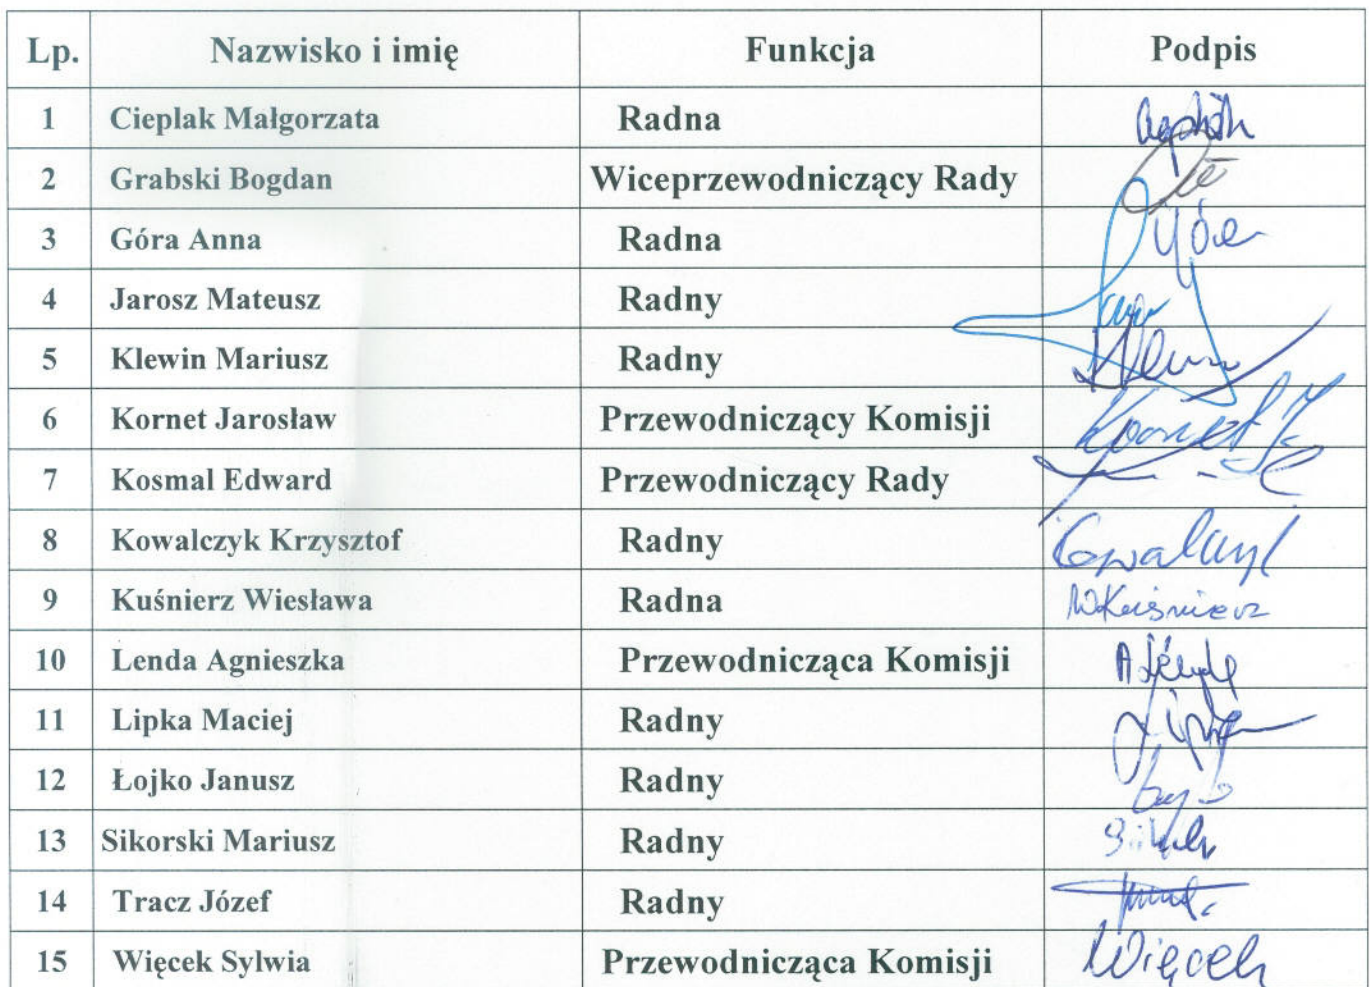 Lp. Nazwisko i imię Funkcja Podpis
1 Cieplak Małgorzata Radna
2 Grabski Bogdan Wiceprzewodniczący Rady
3 Góra Anna Radna Góra
4 Jarosz Mateusz Radny
5 Klewin Mariusz Radny
6 Kornet Jarosław Przewodniczący Komisji Kornet J
7 Kosmal Edward Przewodniczący Rady
8 Kowalczyk Krzysztof Radny Kowalczyk
9 Kuśnierz Wiesława Radna WKuśnierz
10 Lenda Agnieszka Przewodnicząca Komisji A Lenda
11 Lipka Maciej Radny Lipka
12 Łojko Janusz Radny
13 Sikorski Mariusz Radny
14 Tracz Józef Radny
15 Więcek Sylwia Przewodnicząca Komisji Więcek